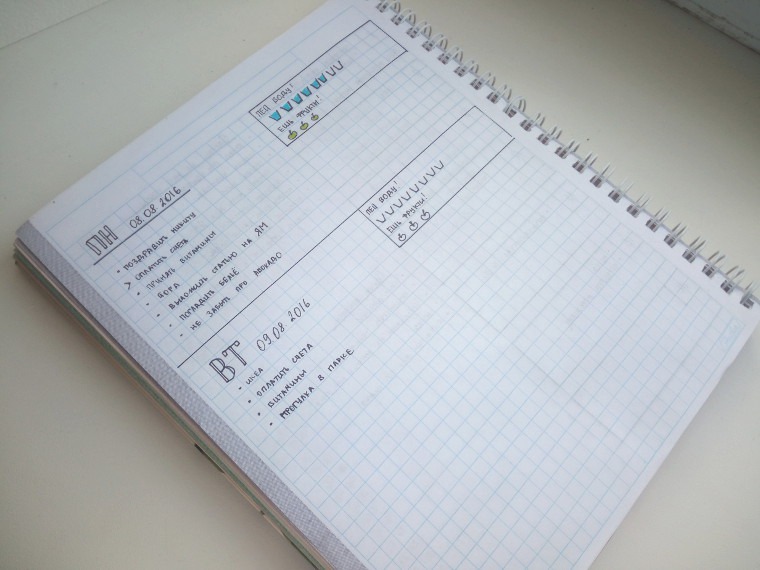 ПН 08.08.2016
• ПОЗДРАВИТЬ НИКИТУ
> ОПЛАТИТЬ СЧЕТА
• ПРИНЯТЬ ВИТАМИНЫ
• ЙОГА
• ВЫЛОЖИТЬ СТАТЬЮ НА ЯМ
• ПОГЛАДИТЬ БЕЛЬЁ
- НЕ ЗАБЫТЬ ПРО АВОКАДО
ПЕЙ ВОДУ!
ЕШЬ ФРУКТЫ!
ВТ 09.08.2016
• ИКЕА
• ОПЛАТИТЬ СЧЕТА
• ВИТАМИНЫ
- ПРОГУЛКА В ПАРКЕ
ПЕЙ ВОДУ!
ЕШЬ ФРУКТЫ!